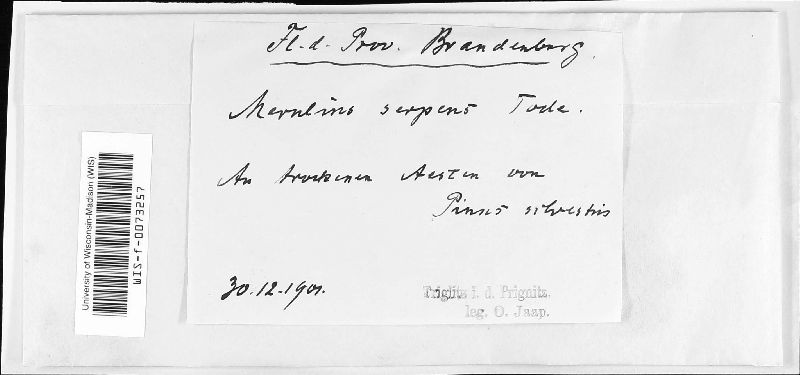 Fl. d. Prov. Brandenburg.
Merulius serpens Tode.
An trockenen Aesten von
Pinus silvestris
30.12.1901.
Triglitz i. d. Prignitz.
leg. O. Jaap.
University of Wisconsin-Madison (WIS)
WIS-f-0073257